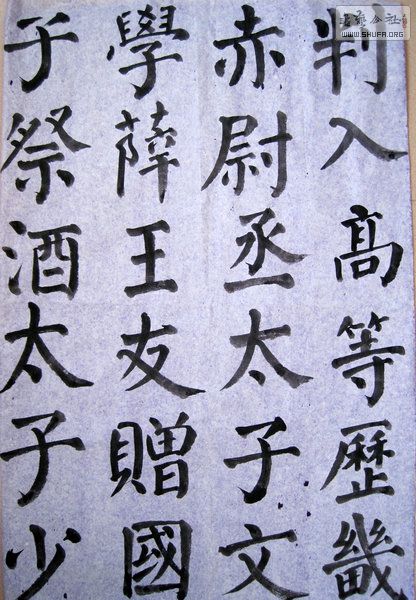 判入髙等歷畿
赤尉丞太子文
學薛王友贈國
子祭酒太子少
WWW.SHUFA.ORG